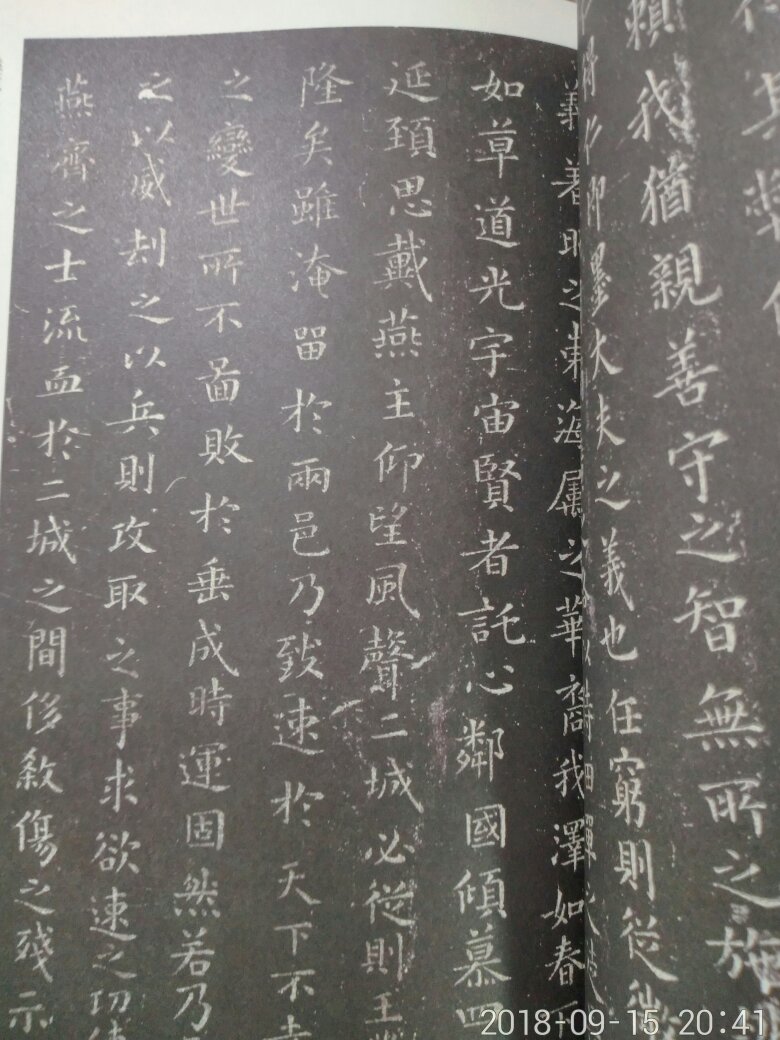 賴我猶親善守之智無所之施
即墨大夫之義也任窮則從
義著昭之東海屬之華裔我澤如春
如草道光宇宙賢者託心鄰國傾慕四
延頸思戴燕主仰望風聲二城必從則王
隆矣雖淹留於兩邑乃致速於天下不幸
之變世所不啚敗於垂成時運固然若乃
之以威劫之以兵則攻取之事求欲速之功
燕齊之士流血於二城之間侈殺傷之殘示
2018-09-15 20:41